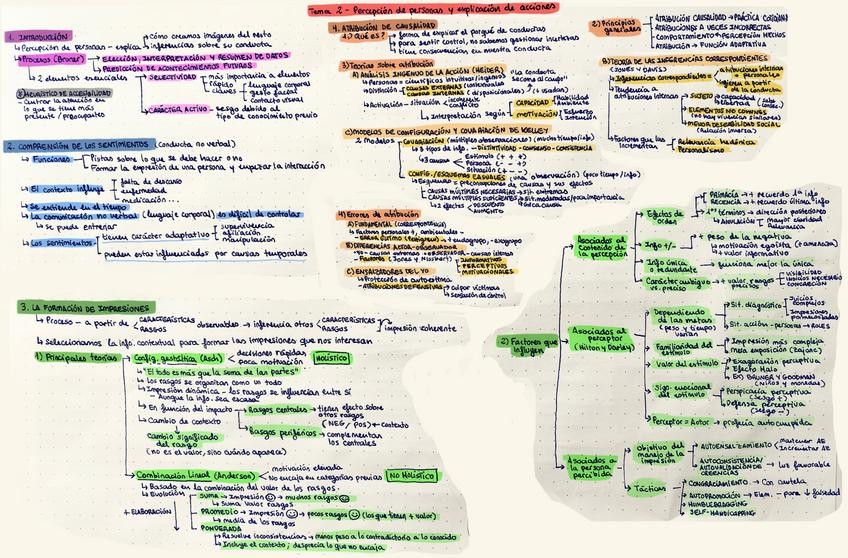 Tema 2 - Percepción de personas y explicación de acciones
1. INTRODUCCIÓN
Percepción de personas - explica
cómo creamos imágenes del resto
inferencias sobre su conducta
Proceso (Bruner)
ELECCIÓN, INTERPRETACIÓN Y RESUMEN DE DATOS
PREDICCIÓN DE ACONTECIMIENTOS FUTUROS
2 elementos esenciales
SELECTIVIDAD
más importancia a elementos
rápidos
claves
lenguaje corporal
gesto facial
contacto visual
CARÁCTER ACTIVO - sesgo debido al
tipo de conocimiento previo
HEURÍSTICO DE ACCESIBILIDAD
Centrar la atención en
lo que se tiene más
presente / preocupantes
2. COMPRENSIÓN DE LOS SENTIMIENTOS (Conducta no verbal)
Funciones
Pistas sobre lo que se debe hacer o no
Formar la expresión de una persona y empezar la interacción
El contexto influye
falta de descanso
enfermedad
medicación...
Se extiende en el tiempo
La comunicación no verbal (lenguaje corporal) es difícil de controlar
se puede entrenar
Los sentimientos
tienen carácter adaptativo
supervivencia
afiliación
manipulación
pueden estar influenciados por causas temporales
3. LA FORMACIÓN DE IMPRESIONES
Proceso - a partir de
CARACTERÍSTICAS
RASGOS
observables → inferencia otros
CARACTERÍSTICAS
RASGOS
impresión coherente
Seleccionamos la info. contextual para formar las impresiones que nos interesan
1) Principales teorías
Config. gestáltica (Asch)
decisiones rápidas
poca motivación
HOLÍSTICO
"El todo es más que la suma de las partes"
los rasgos se organizan como un todo
Impresión dinámica - los rasgos se influencian entre sí
- Aunque la info. sea escasa
En función del impacto
Rasgos centrales → tienen efecto sobre
otros rasgos
(NEG / POS) ← contexto
Rasgos periféricos → complementar
los centrales
Cambio de contexto
cambio significado
del rasgo
(no es el valor, sino cuándo aparece)
Combinación Lineal (Anderson)
motivación elevada
No encaja en categorías previas
NO HOLÍSTICO
Basado en la combinación del valor de los rasgos.
Evolución
+ ELABORACIÓN
SUMA → Impresión → muchos rasgos
Suma valor rasgos
PROMEDIO → Impresión → pocos rasgos (los que tienen + valor)
media de los rasgos
PONDERADA
Resuelve inconsistencias → menos peso a lo contradictorio a lo conocido
Incluye el contexto; desprecia lo que no encaja
4. ATRIBUCIÓN DE CAUSALIDAD
1) ¿Qué es?
forma de explicar el porqué de conductas
para sentir control, no sabemos gestionar incertezas
tiene influencia, en nuestra conducta
2) Principios
generales
ATRIBUCIÓN CAUSALIDAD → PRÁCTICA COTIDIANA
ATRIBUCIONES A VECES INCORRECTAS
COMPORTAMIENTO → PERCEPCIÓN HECHOS
ATRIBUCIÓN → FUNCIÓN ADAPTATIVA
3) Teorías sobre atribución
A) ANÁLISIS INGENUO DE LA ACCIÓN (HEIDER)
Personas = científicos intuitivos (ingenuos)
Distinción
CAUSAS EXTERNAS
CAUSAS INTERNAS (disposicionales)
Activación - situación
incoherente
conflicto
Interpretación según
CAPACIDAD
Habilidad
Ambiente
MOTIVACIÓN
Esfuerzo
Intención
B) TEORÍA DE LAS INFERENCIAS CORRESPONDIENTES
(JONES Y DAVIS)
Inferencias correspondientes =
atribuciones internas
o personales
inferidas a partir
de la conducta
Tendencia a
atribuciones internas
SUJETO
capacidad
libertad
ELEMENTOS NO COMUNES
(no hay vivencias similares)
MENOR DESEABILIDAD SOCIAL
(relación inversa)
Factores que las
incrementan
Relevancia hedónica
Personalismo
C) MODELOS DE CONFIGURACIÓN Y COVARIACIÓN DE KELLEY
2 modelos
COVARIACIÓN (múltiples observaciones) (mucho tiempo/info)
3 tipos de info. - DISTINTIVIDAD - CONSENSO - CONSISTENCIA
3 causas
Estímulo (+ + +)
Persona (- - +)
Situación (+ - -)
CONFIG./ESQUEMAS CAUSALES (una observación) (poco tiempo/info)
Esquemas = preconcepciones de causas y sus efectos
CAUSAS MÚLTIPLES NECESARIAS → sit. extremas
CAUSAS MÚLTIPLES SUFICIENTES → sit. moderadas/poca importancia
2 efectos
DESCUENTO
AUMENTO
4) Errores de atribución
A) FUNDAMENTAL (correspondencia)
Factores personales +, ambientales -
B) DIFERENCIAS ACTOR-OBSERVADOR
yo - causas externas - OBSERVADOR - causas internas
Factores (Jones y Nisbett)
INFORMATIVOS
PERCEPTIVOS
MOTIVACIONALES
C) ENSALZADORES DEL YO
Protección de autoestima
ATRIBUCIONES DEFENSIVAS
culpar víctimas
sensación de control
2) Factores que
influyen
Asociados al
contenido de
la percepción
Efectos de
orden
PRIMACÍA → + recuerdo 1ª info
RECENCIA → + recuerdo última info
1ºs términos → dirección posteriores
Info +/-
+ peso de la negativa
motivación egoísta (= amenaza)
+ valor informativo
Info única
o redundante
funciona mejor la única
Carácter ambiguo
vs. preciso
+ valor rasgos
precisos
VISIBILIDAD
Asociados al
perceptor
(Hilton y Darley)
Dependiendo
de las metas
(peso y tiempo)
varían
Sit. diagnóstico
Juicios
complejos
Impresiones
Sit. acción - persona → ROLES
Familiaridad del
estímulo
Impresión más compleja
Mera exposición (Zajonc)
Valor del estímulo
Exageración perceptiva
Efecto Halo
Ej) BRUNER Y GOODMAN
(niños y monedas)
Sign. emocional
del estímulo
Perspicacia perceptiva
(sesgo +)
Defensa perceptiva
(sesgo -)
Perceptor = Actor → profecía autocumplida
Asociados a
la persona
percibida
Objetivo del
manejo de la
impresión
AUTOENSALZAMIENTO
Mantener AE
Incrementar AE
AUTOCONSISTENCIA/
AUTOVALIDACIÓN DE
CREENCIAS
Tácticas
CONGRACIAMIENTO - Con cautela
AUTOPROMOCIÓN → Elem. - para ↓ falsedad
HUMBLEBRAGGING
SELF-HANDICAPPING